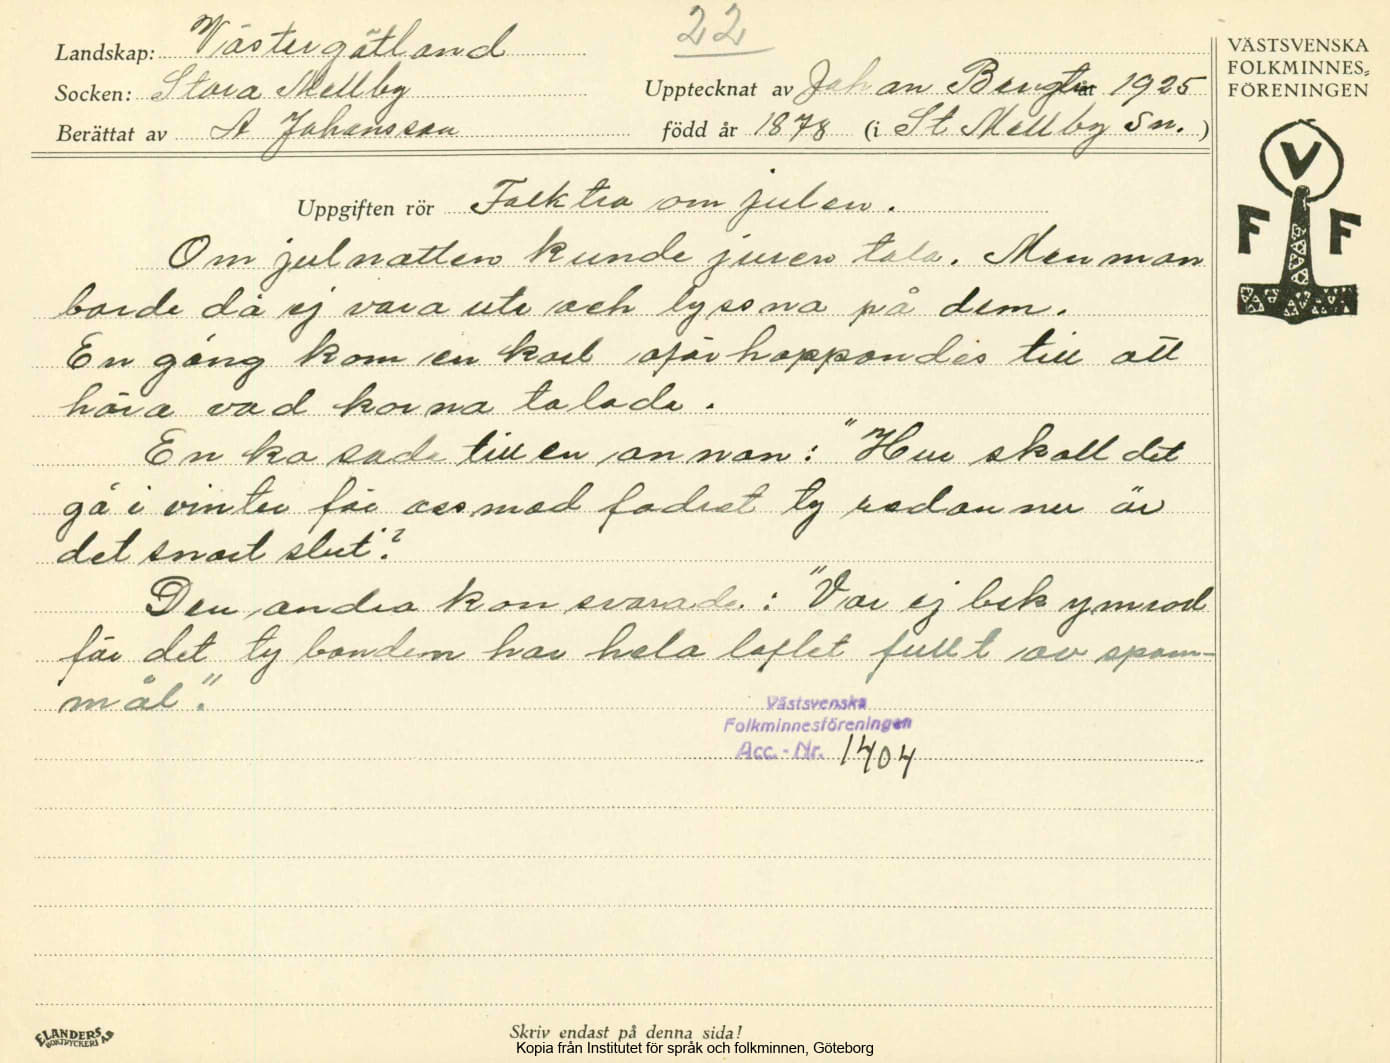 22
Landskap: Västergötland
Socken: Stora Mellby
Upptecknat av Johan Bengts år 1925
Berättat av A Johansson
född år 1878 (i St Mellby sn.)
VÄSTSVENSKA
FOLKMINNES=
FÖRENINGEN
V
F F
Uppgiften rör Folktro om julen.
Om julnatten kunde juren tala. Men man
borde då ej vara ute och lyssna på dem.
En gång kom en karl oförhappandes till att
höra vad korna talade.
En ko sade till en annan: "Hur skall det
gå i vinter för oss med fodret ty redan nu är
det snart slut"?
Den andra kon svarade: "Var ej bekymrad
för det ty bonden har hela loftet fullt av spann-
mål".
Västsvenska
Folkminnesföreningen
Acc.-Nr. 1404
ELANDERS
BOKTRYCKERI AB
Skriv endast på denna sida!
Kopia från Institutet för språk och folkminnen, Göteborg